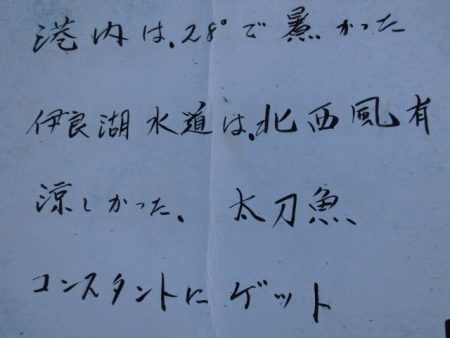 港内は、28°で暑かった
伊良湖水道は、北西風有
涼しかった、太刀魚
コンスタントにゲット